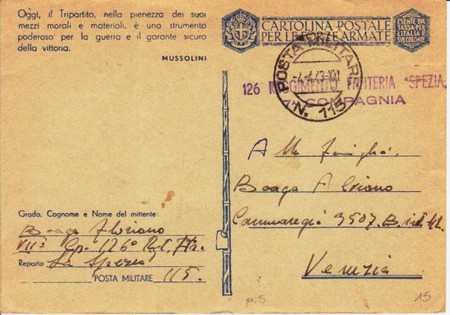 Oggi, il Tripartito, nella pienezza dei suoi
mezzi morali e materiali, è uno strumento
poderoso per la guerra e il garante sicuro
della vittoria.
MUSSOLINI
CARTOLINA POSTALE
PER LE FORZE ARMATE
ESENTE DA
TASSA PER
L'ITALIA E
POSTA MILITARE
N. 115
126 REGGIMENTO FANTERIA "SPEZIA"
COMPAGNIA
Alla famiglia
Boaga Floriano
Cannaregio 3507
Venezia
Grado, Cognome e Nome del mittente:
Boaga Floriano
VIIª Cp. 126° Rgt. Ftr.
Reparto La Spezia
POSTA MILITARE 115.
p.s
15